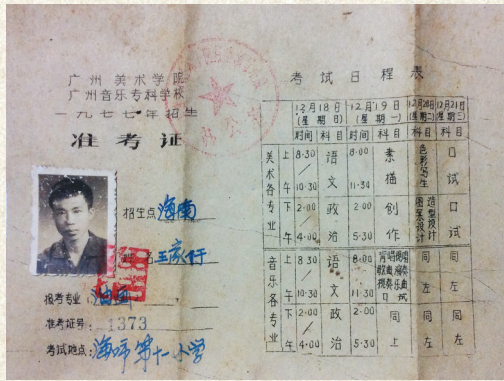 广州美术学院
广州音乐专科学校
一九七七年招生
准考证
招生点 海南
姓名 王家行
报考专业 油画
准考证号: 1373
考试地点: 海师第十一小学
考试日程表
12月18日 (星期日) 12月19日 (星期一) 12月20日 (星期二) 12月21日 (星期三)
时间 科目 时间 科目 科目 科目
美术各专业
上午 8·30/10·30 语文 8·00 11·30 素描 色彩写生 口试
下午 2·00 4·00 政治 2·00 5·30 创作 图案设计 造型设计 口试
音乐各专业
上午 8·30/10·30 语文 8·00 11·30 同左 同左
下午 2·00/4·00 政治 2·00 5·30 同上 同左 同左